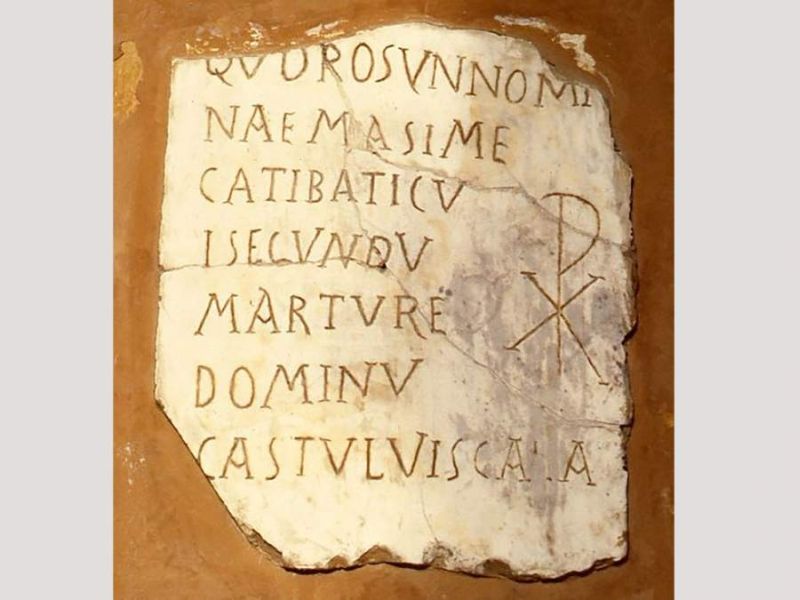 QVDROSVNNOMI
NAEMASIME
CATIBATICV
ISECVNDV
MARTVRE
DOMINV
CASTVLVISCALA